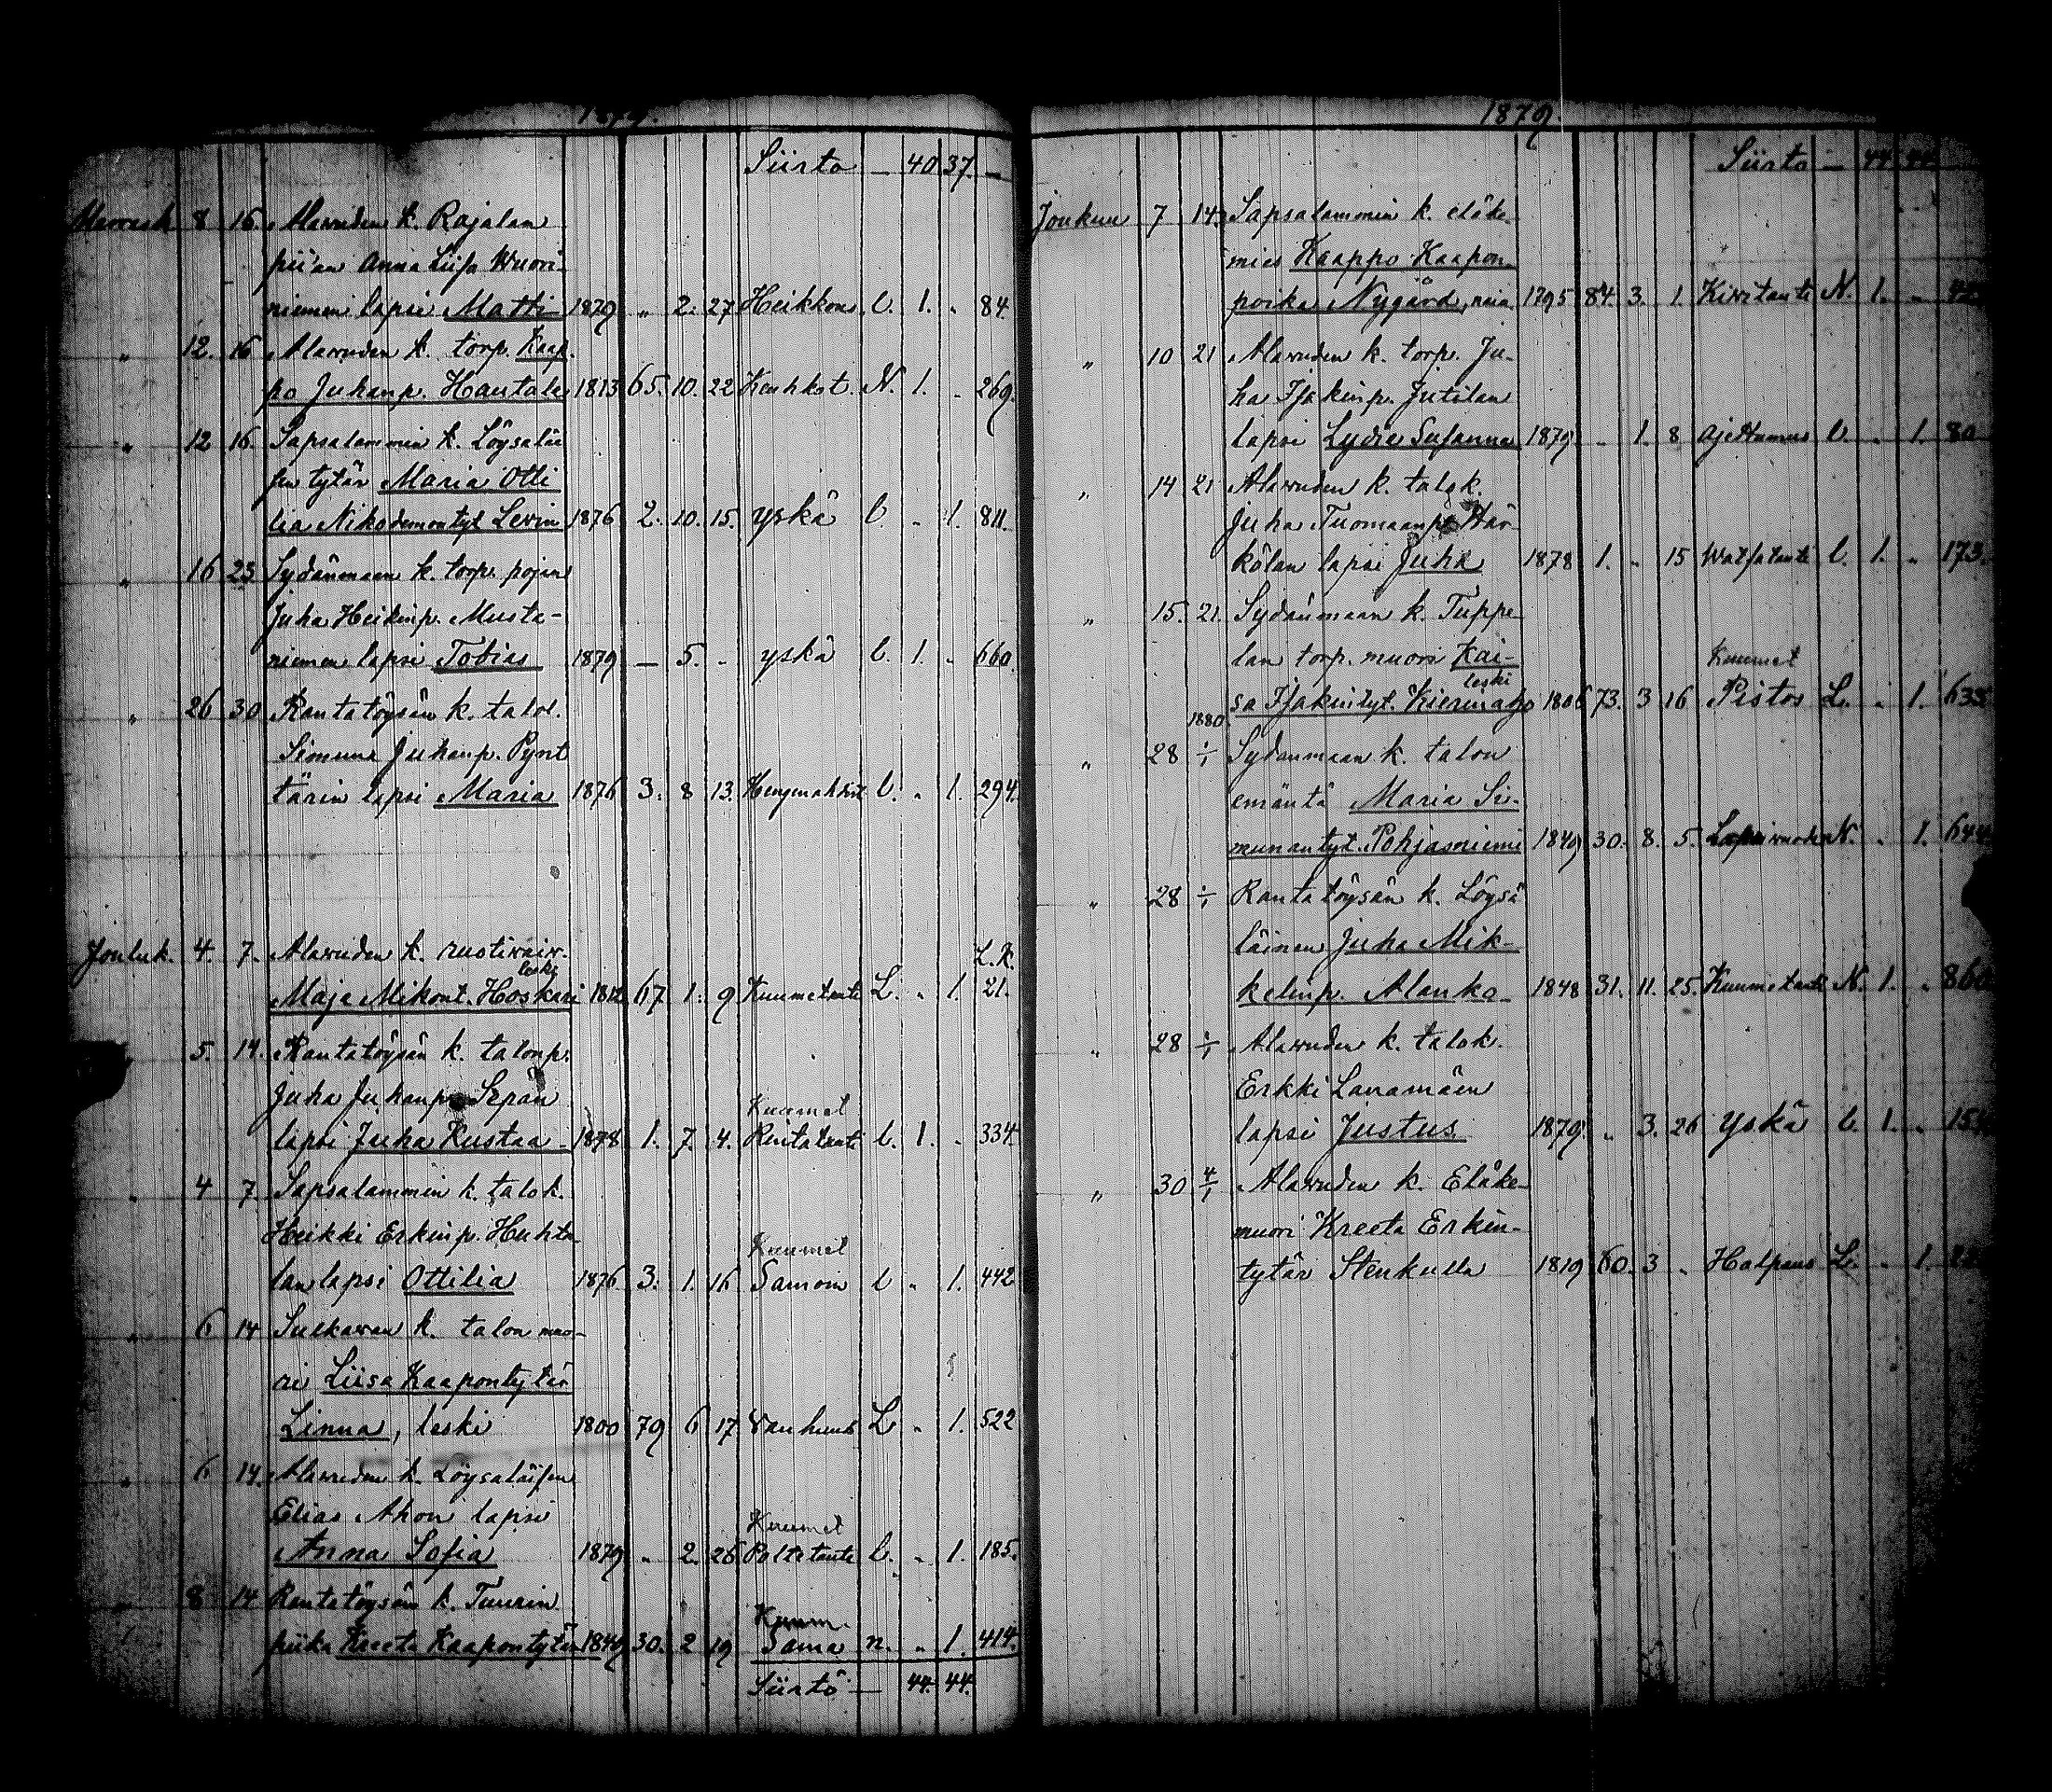 1879.
Siirto — 40 37. —
Marrask. 8 16. Alawuden k. Rajalan
piian Anna Liisa Wuori-
niemen lapsi Matti 1879 „ 2. 27 Heikkous l. 1. „ 84.
„ 12. 16 Alawuden k. torp. Kaap-
po Juhanp. Hautala 1813 65. 10. 22 Keuhkot. N. 1. „ 269.
„ 12 16. Sapsalammin k. Löysäläi
sen tytär Maria Otti
lia Nikodemontyt Levin 1876 2. 10. 15. yskä l. „ 1. 811.
„ 16 23 Sydänmaan k. torp. pojan
Juha Heikinp. Musta-
niemen lapsi Tobias 1879 — 5. „ yskä l. 1. „ 660.
„ 26 30 Rantatöysän k. talol.
Simuna Juhanp. Pynt
tärin lapsi Maria 1876 3. 8 13. l. „ 1. 294.
Jouluk. 4. 7. Alawuden k. ruotivaiv.
leski L.K.
Maja Mikont. Hoskari 1812 67. 1. 9 Kuumetauti L. „ 1. 21.
5. 14. Rantatöysän k. talonp.
Juha Juhanp. Sepän
Kuumet
lapsi Juha Kustaa 1878 1. 7. 4. Rintatauti l. 1. „ 334.
„ 4 7 Sapsalammin k. talok.
Heikki Erkinp. Huhta-
Kuumet
lan lapsi Ottilia 1876 3. 1. 16 Samoin l „ 1. 442
„ 6 14 Sulkawan k. talon muo-
ri Liisa Kaapontytär
Linna, leski 1800 79 6 17 Vanhuus L „ 1. 522
„ 6 14. Alawuden k. Löysäläisen
Elias Ahon lapsi
Kuumet
Anna Sofia 1879 „ 2. 26 Polttotauti l. „ 1. 185.
„ 8 14 Rantatöysän k. Taurin
Kuum.
piika Kreeta Kaapontytär 1849 30. 2 19 Sama n. „ 1. 414.
Siirto — 44. 44.
1879.
Siirto — 44 44.
Joukuu 7 14. Sapsalammin k. eläke-
mies Kaappo Kaapon-
poika Nygård, naia 1795 84. 3. 1. Kivitauti N. 1. „
„ 10 21 Alawuden k. torp. Ju-
ha Isakinp. Jutilan
lapsi Lydia Susanna 1879 „ 1. 8 Ajettumus l. „ 1. 80
„ 14 21 Alawuden k. talok.
Juha Tuomaanp. Här-
kölän lapsi Juha 1878 1. „ 15 Watsatauti l. 1. „ 173.
„ 15. 21. Sydänmaan k. Tuppe-
lan torp. muori Kai-
leski Kuumet
sa Isakintyt. Kiermapo 1806 73. 3 16 Pistos L. „ 1. 635
1880.
„ 28 1/1 Sydänmaan k. talon
emäntä Maria Si-
munantyt. Pohjasniemi 1849 30. 8. 5. Lapsivuode N. „ 1. 644
„ 28 1/1 Rantatöysän k. Löysä
läinen Juha Mik-
kelinp. Alanko 1848 31. 11. 25. Kuumetauti N. 1. „ 860
„ 28 1/1 Alawuden k. talok.
Erkki Lanamäen
lapsi Justus 1879. „ 3. 26 Yskä l. 1. „
„ 30 4/1 Alawuden k. Eläke-
muori Kreeta Erkin-
tytär Stenkulla 1819 60. 3 „ Halpaus L. „ 1.